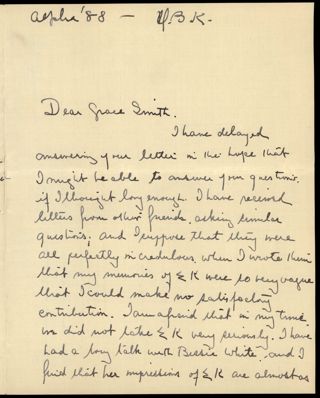 Alpha '88 — Φ.B.K.
Dear Grace Smith.
I have delayed
answering your letter in the hope that
I might be able to answer your questions,
if I thought long enough. I have received
letters from other friends, asking similar
questions; and I suppose that they were
all perfectly incredulous, when I wrote them
that my memories of E K were so very vague
that I could make no satisfactory
contribution. I am afraid that in my time
we did not take E K very seriously. I have
had a long talk with Bessie White, and I
find that her impressions of E K are almost as